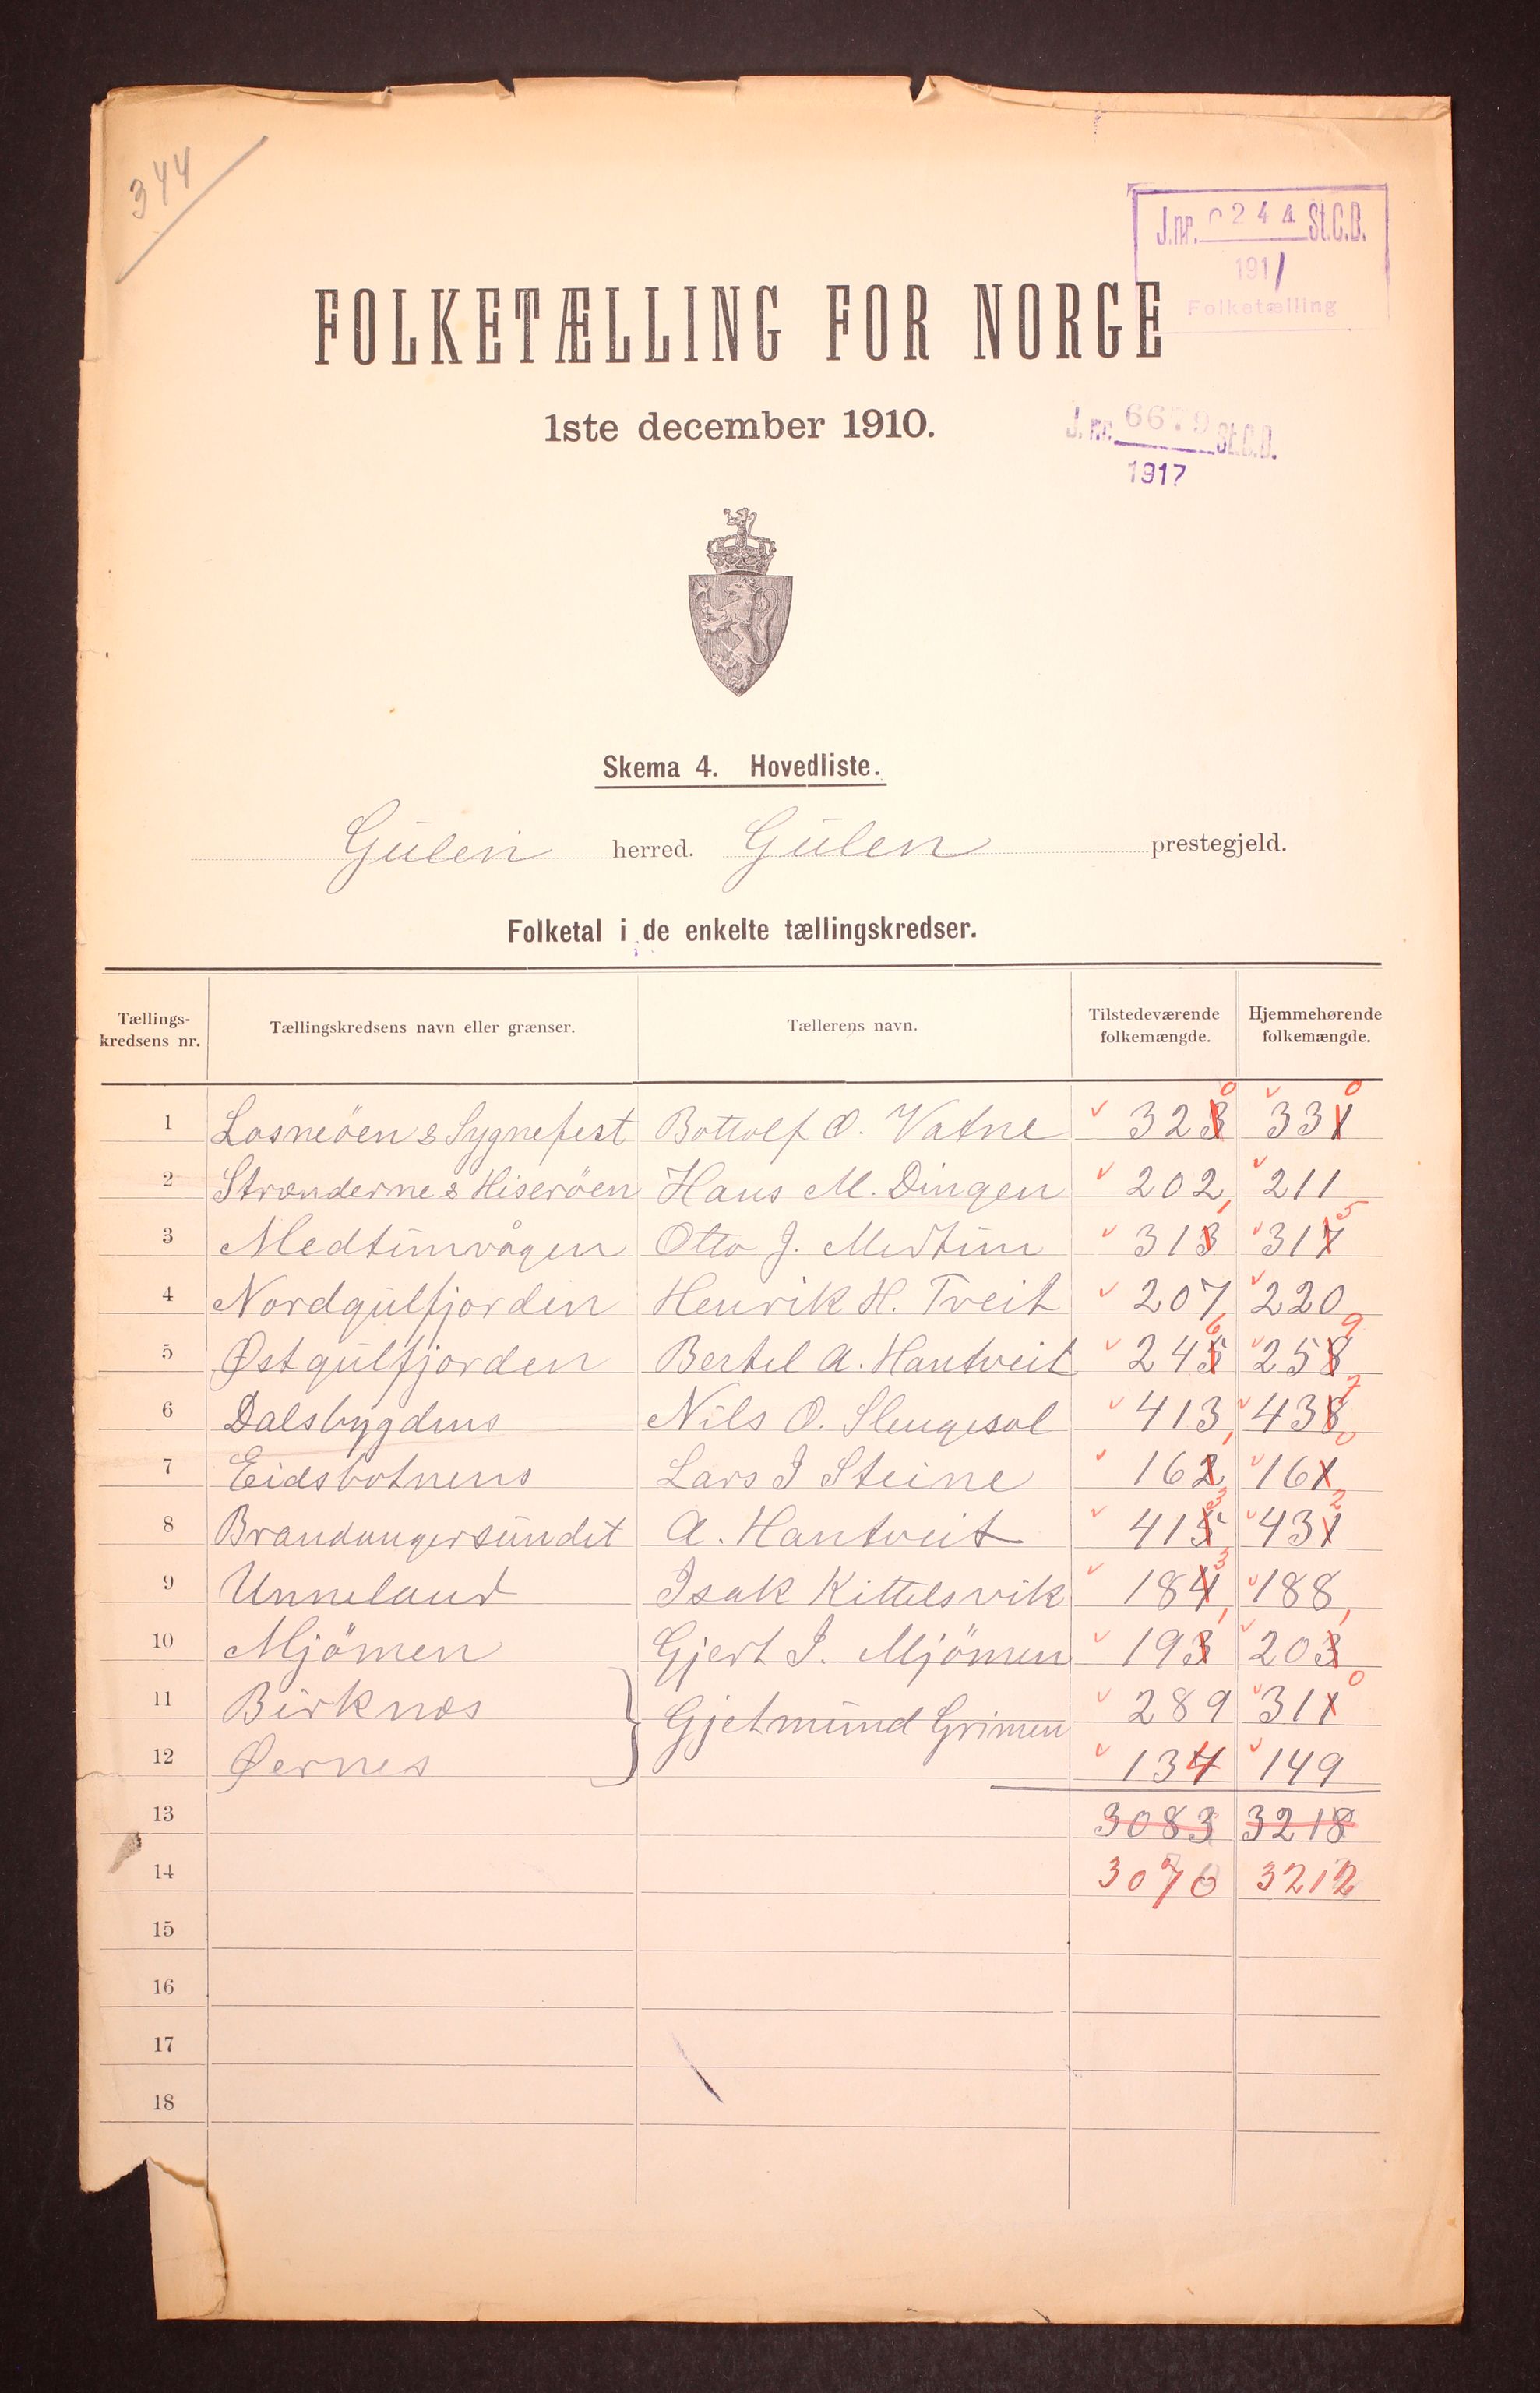 344
J.nr. 0244 St.C.B.
1911
Folketælling
FOLKETÆLLING FOR NORGE
1ste december 1910.
J. nr. 6679 St.C.B.
1917
Skema 4. Hovedliste.
Gulen herred. Gulen prestegjeld.
Folketal i de enkelte tællingskredser.
Tællings-kredsens nr. Tællingskredsens navn eller grænser. Tællerens navn. Tilstedeværende folkemængde. Hjemmehørende folkemængde.
1 Losneöen & Sygnefest Bottolf O. Vatne 323 0 331 0
2 Strænderne & Hiseröen Hans M. Dingen 202 211
3 Medtunvågen Otto J. Medtun 313 1 317 5
4 Nordgulfjorden Henrik H. Tveit 207 220
5 Østgulfjorden Bertel A. Hantveit 245 6 258 9
6 Dalsbygdens Nils O. 413 438 7
7 Eidsbotnens Lars J Steine 162 1 161 0
8 Brandangersundet A. Hantveit 415 3 431 2
9 Unneland Isak Kittelsvik 184 3 188
10 Mjömen Gjert I. Mjömen 193 1 203 1
11 Birknæs Gjetmund Grimen 289 311 0
12 Øernes 134 149
13 3083 3218
14 3070 3212
15
16
17
18